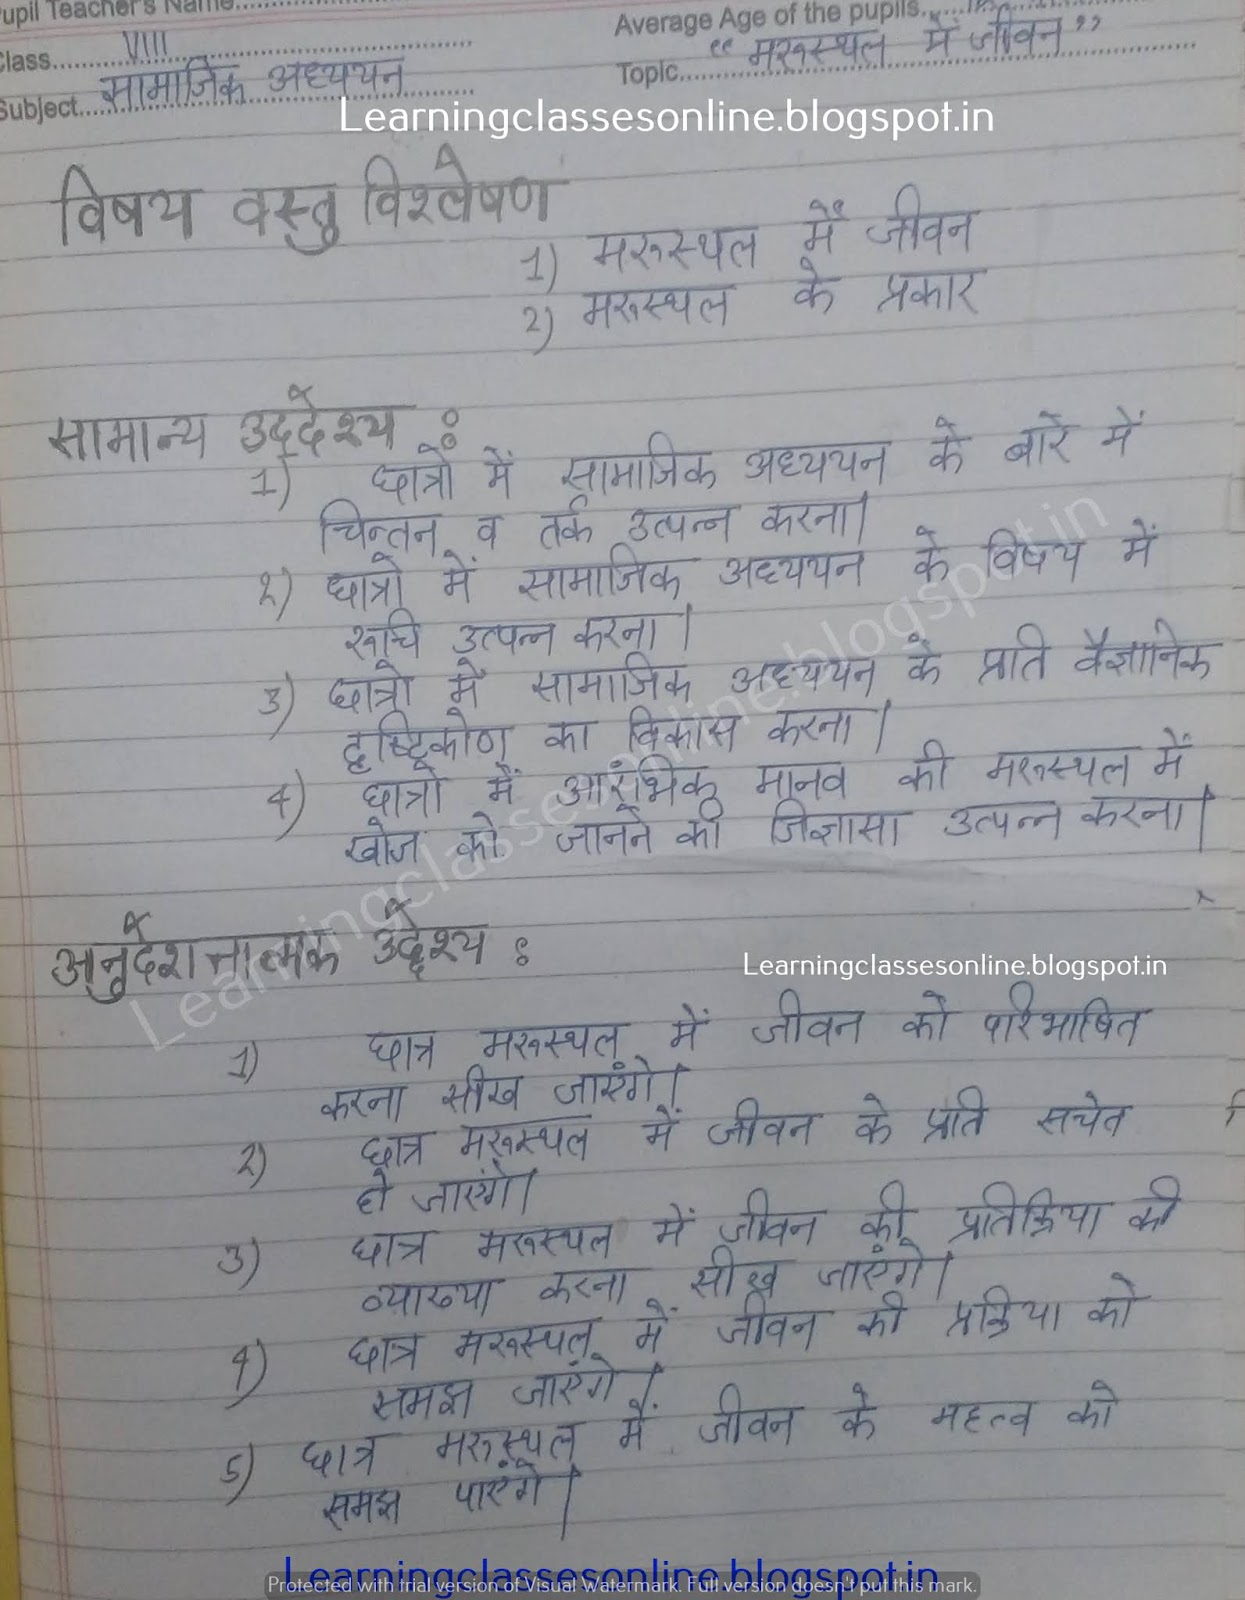 Pupil Teacher's Name
Average Age of the pupils
Class VIII
Topic "मरूस्थल में जीवन"
Subject सामाजिक अध्ययन
Learningclassesonline.blogspot.in
विषय वस्तु विश्लेषण
1) मरूस्थल में जीवन
2) मरूस्थल के प्रकार
सामान्य उद्देश्य :
1) छात्रों में सामाजिक अध्ययन के बारे में
चिन्तन व तर्क उत्पन्न करना।
2) छात्रों में सामाजिक अध्ययन के विषय में
रूचि उत्पन्न करना।
3) छात्रों में सामाजिक अध्ययन के प्रति वैज्ञानिक
दृष्टिकोण का विकास करना।
4) छात्रों में आरंभिक मानव की मरूस्थल में
खोज को जानने की जिज्ञासा उत्पन्न करना।
अनुदेशनात्मक उद्देश्य :
Learningclassesonline.blogspot.in
Learningclassesonline.blogspot.in
1) छात्र मरूस्थल में जीवन को परिभाषित
करना सीख जाएंगे।
2) छात्र मरूस्थल में जीवन के प्रति सचेत
हो जाएंगे।
3) छात्र मरूस्थल में जीवन की प्रतिक्रिया की
व्याख्या करना सीख जाएंगे।
4) छात्र मरूस्थल में जीवन की प्रक्रिया को
समझ जाएंगे।
5) छात्र मरूस्थल में जीवन के महत्व को
समझ पाएंगे।
Learningclassesonline.blogspot.in
Protected with trial version of Visual Watermark. Full version doesn't put this mark.